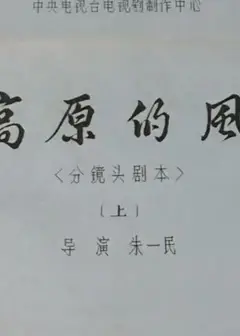 中央电视台电视剧制作中心
高原的風
＜分镜头剧本＞
（上）
导 演 朱一民